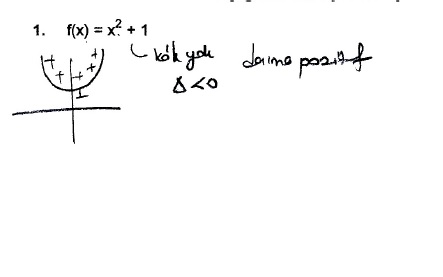 1. f(x) = x² + 1
kök yok daima pozitif
Δ < 0
+ + + + +
1